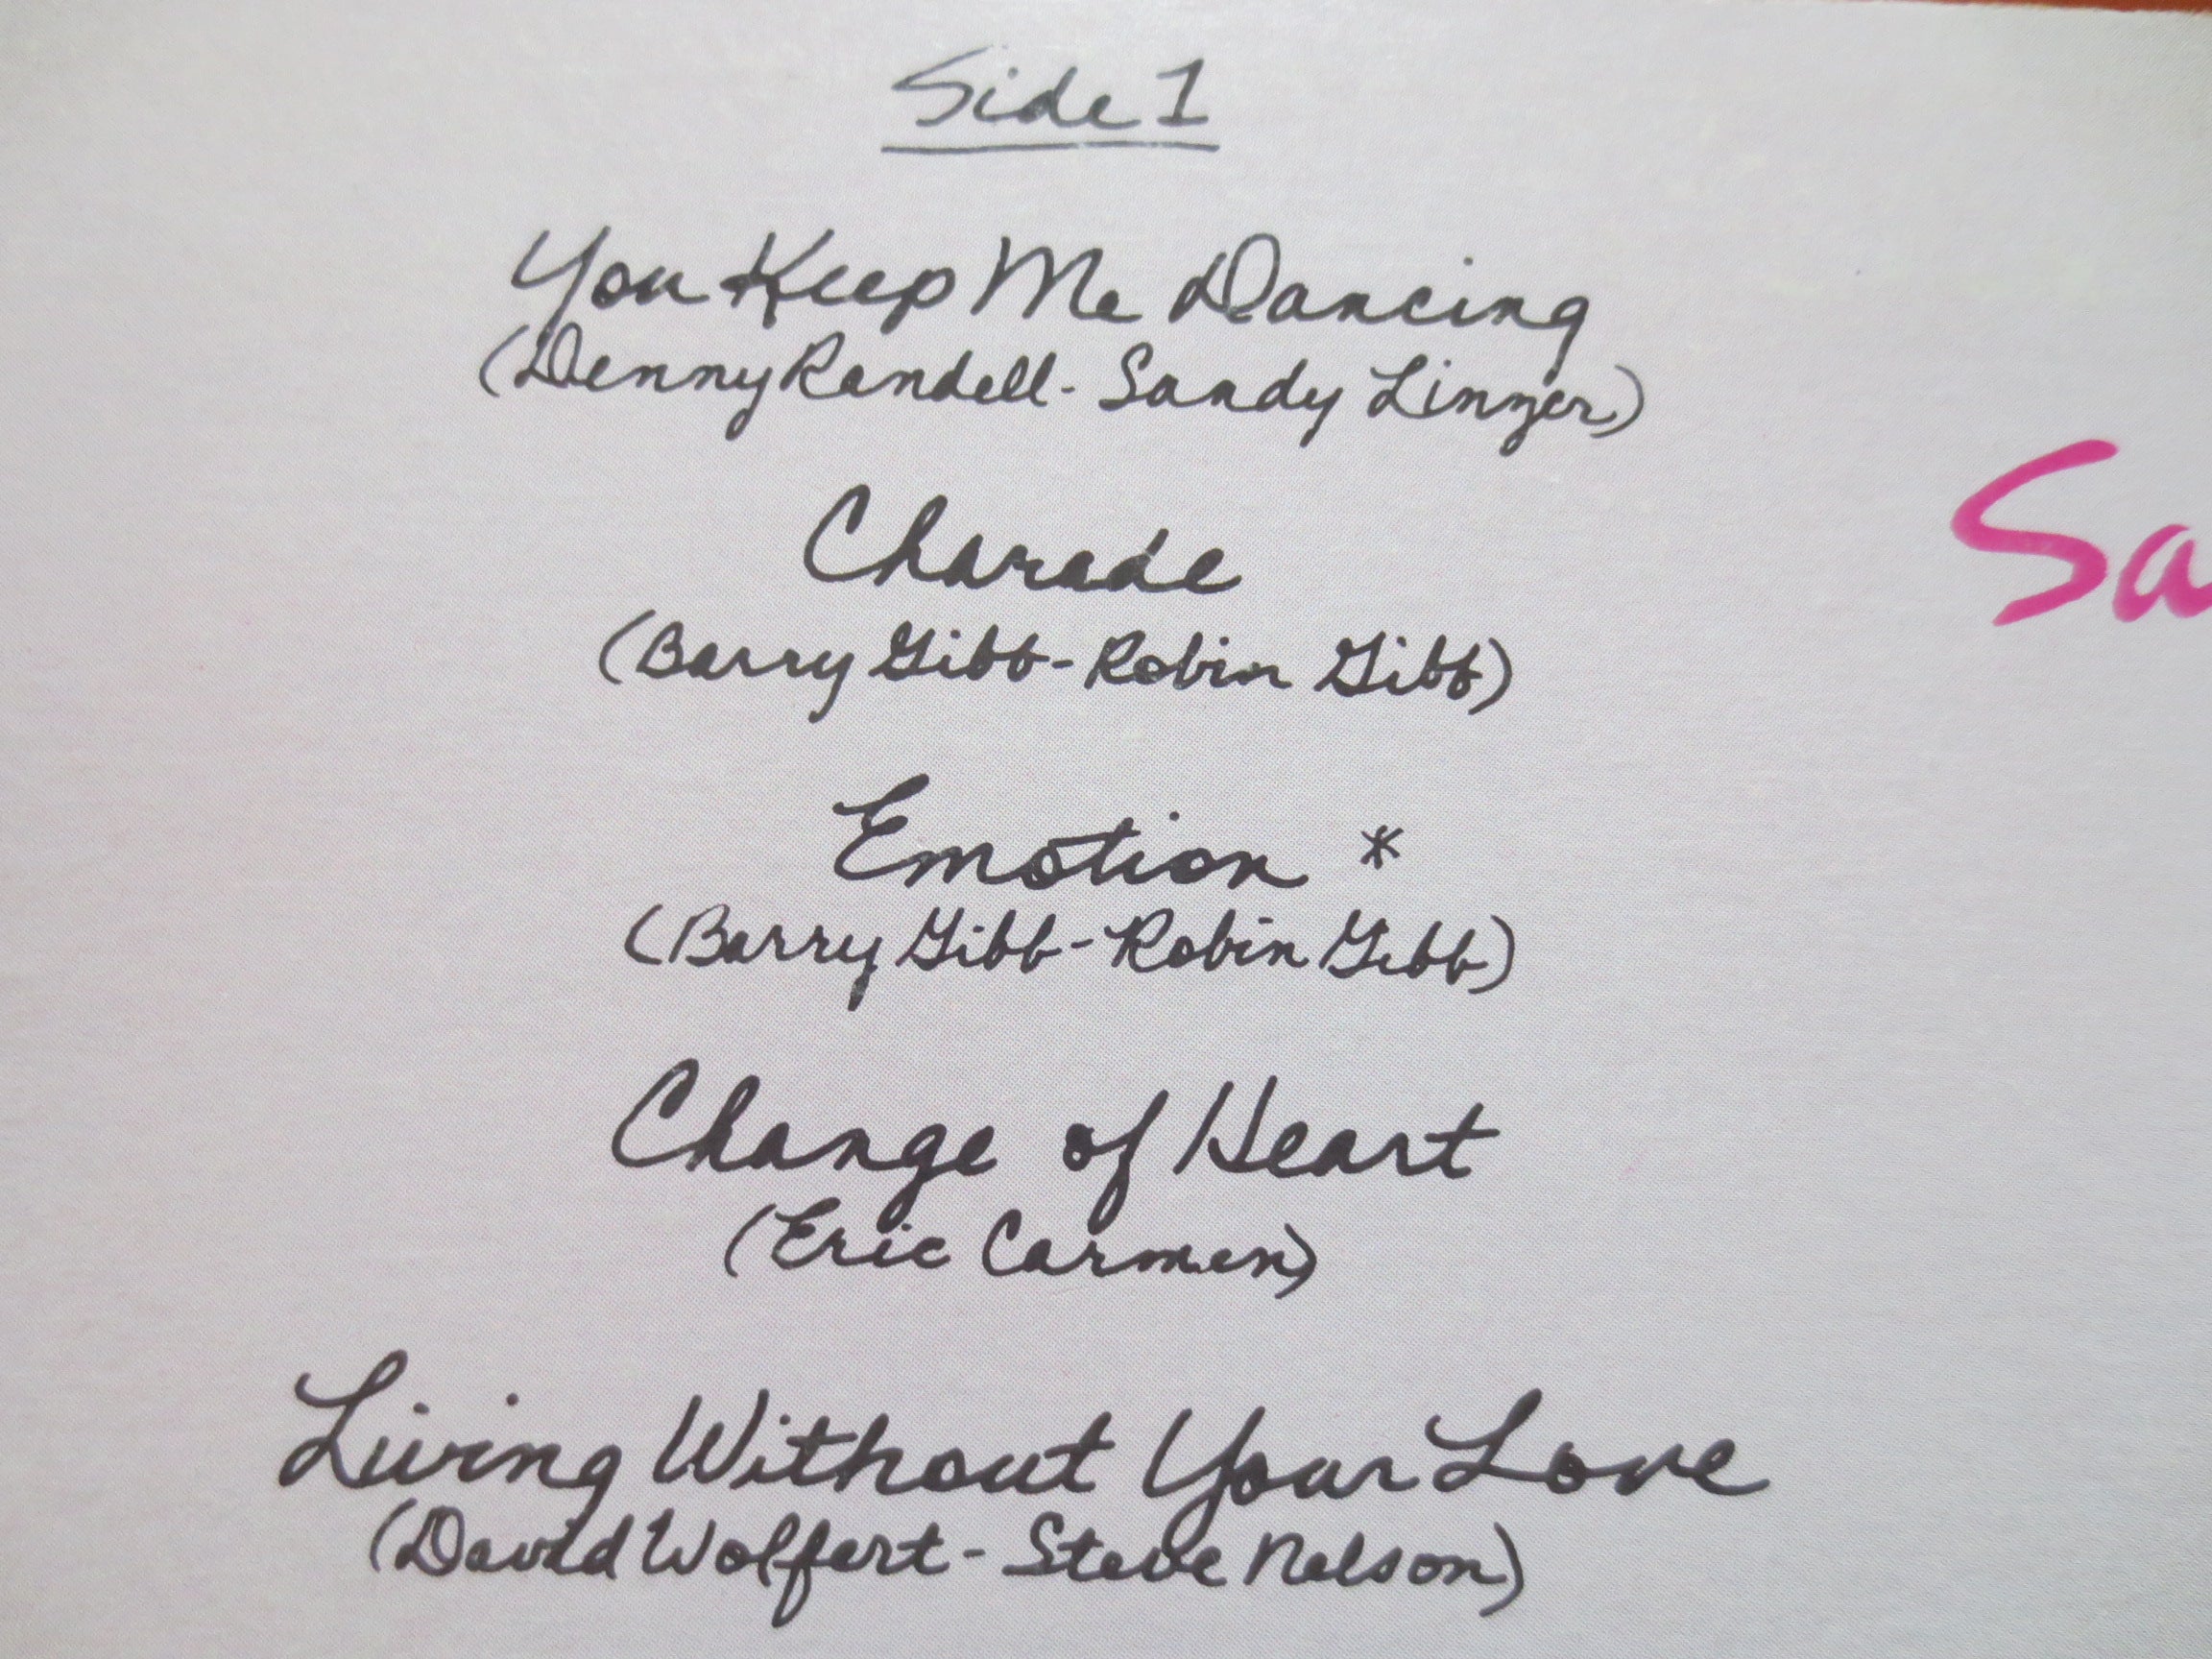 Side 1
You Keep Me Dancing
(Denny Randell - Sandy Linzer)
Charade
(Barry Gibb - Robin Gibb)
Sa
Emotion *
(Barry Gibb - Robin Gibb)
Change of Heart
(Eric Carmen)
Living Without Your Love
(David Wolfert - Steve Nelson)